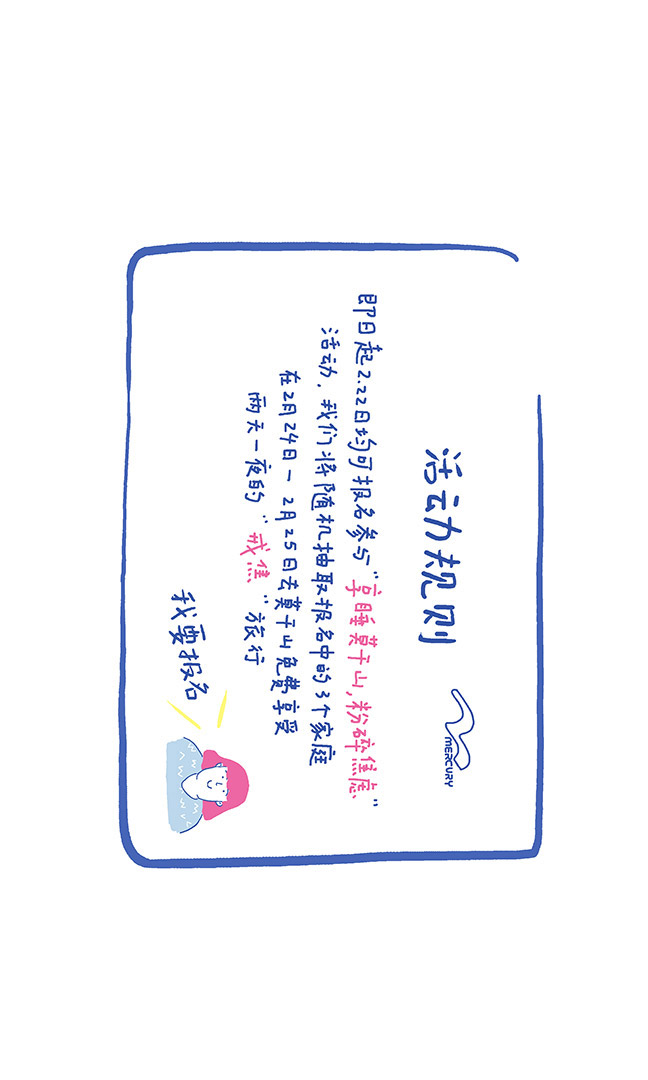 活动规则
MERCURY
即日起2.22日均可报名参与“享睡莫干山,粉碎焦虑”
活动，我们将随机抽取报名中的3个家庭
在2月24日－2月25日去莫干山免费享受
两天一夜的“戒焦”旅行
我要报名